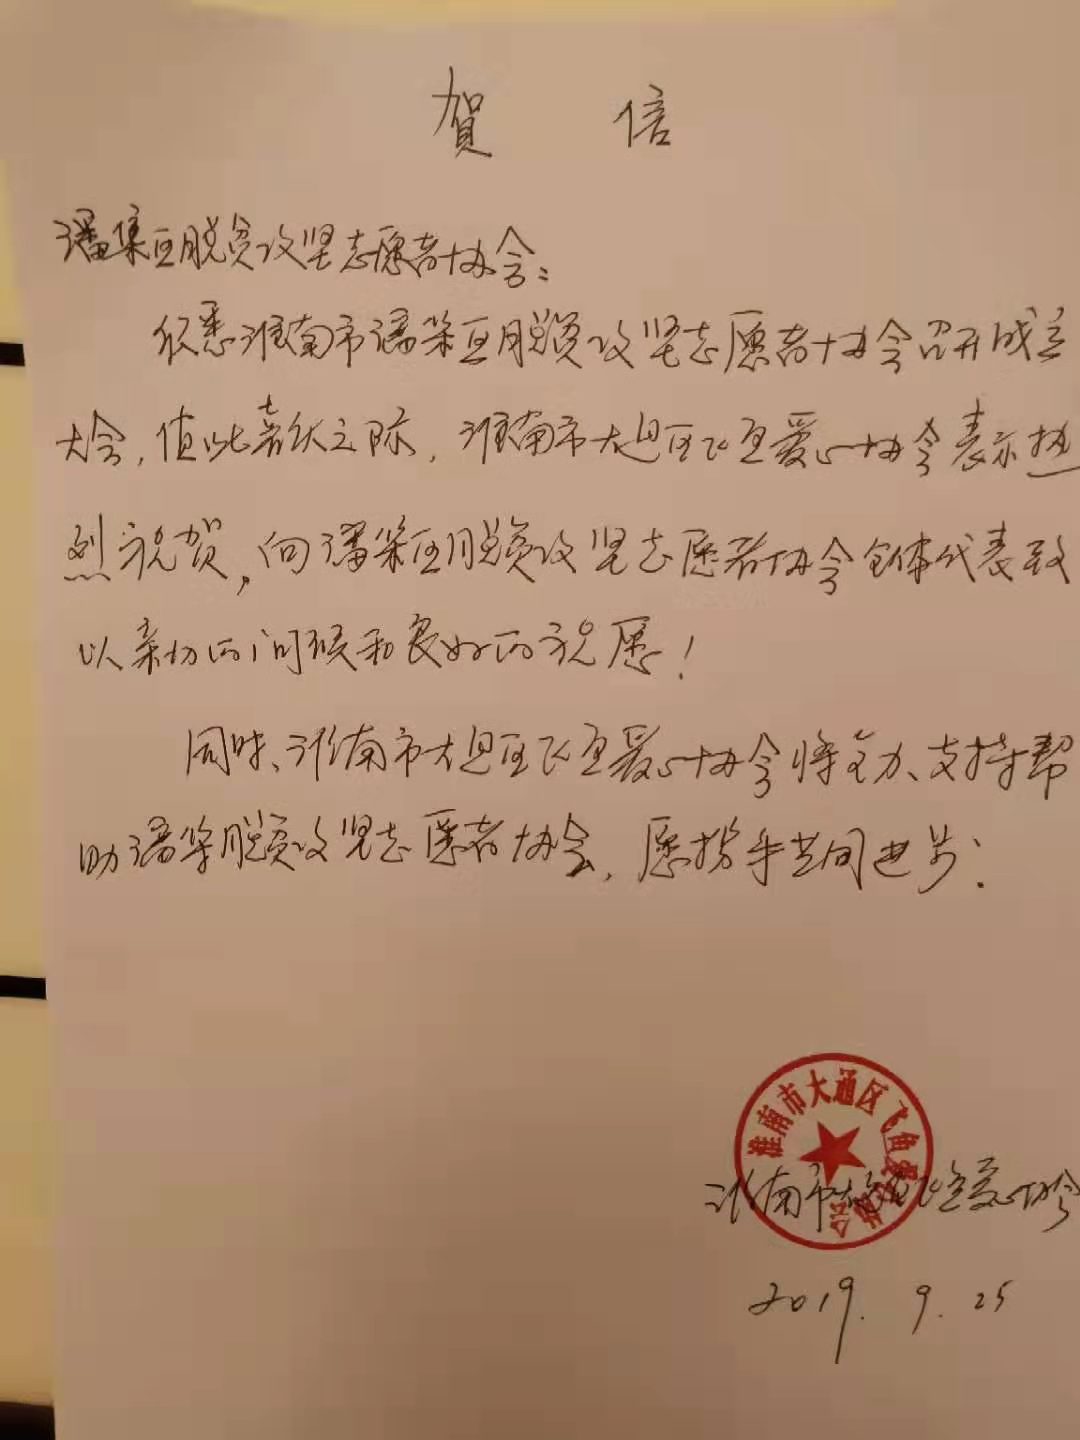 贺 信
潘集区脱贫攻坚志愿者协会：
欣悉淮南市潘集区脱贫攻坚志愿者协会召开成立
大会，值此喜庆之际，淮南市大通区飞鱼爱心协会表示热
烈祝贺，向潘集区脱贫攻坚志愿者协会全体代表致
以亲切的问候和良好的祝愿！
同时、淮南市大通区飞鱼爱心协会将全力、支持帮
助潘集脱贫攻坚志愿者协会，愿携手共同进步：
淮南市大通区飞鱼爱心协会
淮南市大通区飞鱼爱心协会
2019. 9. 25